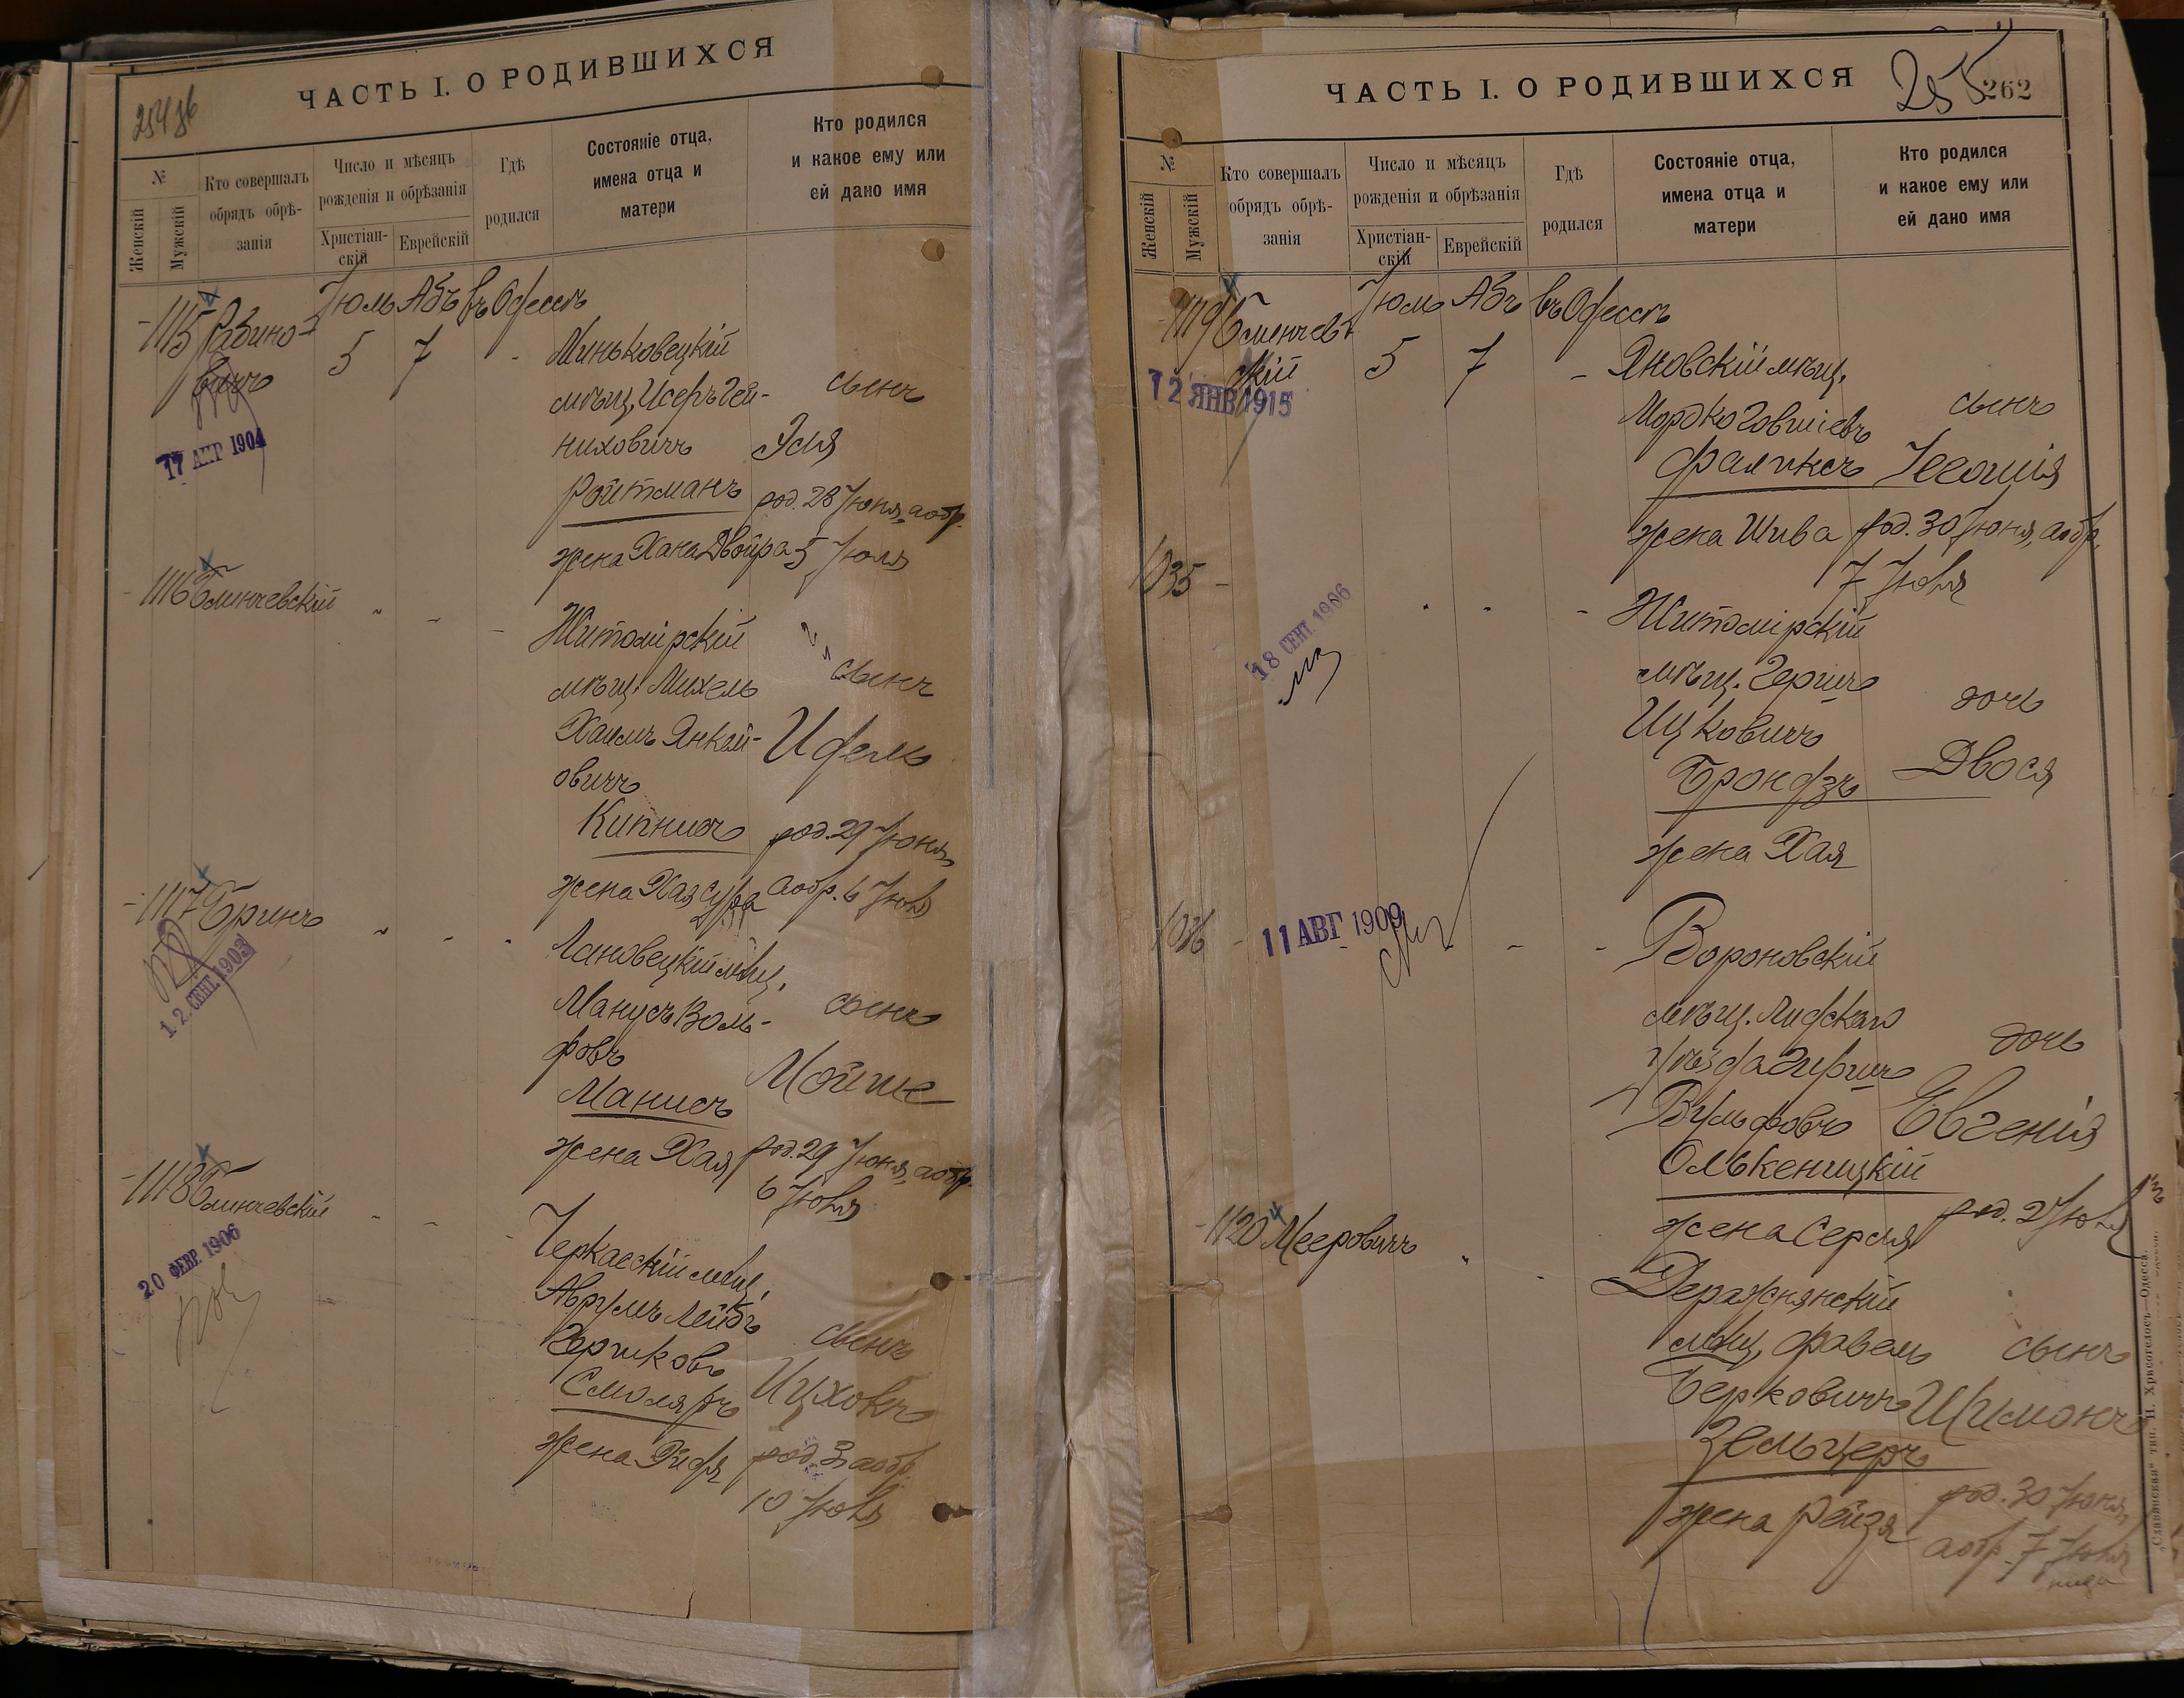 254 об
ЧАСТЬ I. О РОДИВШИХСЯ
№
Женскій
Мужскій
Кто совершалъ
обрядъ обрѣ-
занія
Число и мѣсяцъ
рожденія и обрѣзанія
Христіан-
скій
Еврейскій
Гдѣ
родился
Состояніе отца,
имена отца и
матери
Кто родился
и какое ему или
ей дано имя
Іюль Абъ въ Одессѣ
1115 Рабино-
вичъ
5 7
17 АПР 1904
Миньковецкій
мѣщ. Исеръ Гей-
ниховичъ
Ройтманъ
жена Хана Двойра
сынъ
Эля
род. 28 Іюня, а обр.
5 Іюля
1116 Блинчевскій
Житомірскій
мѣщ. Михель
Хаимъ Янкел-
овичъ
Кипнисъ
жена Хая Сура
сынъ
Идель
род. 29 Іюня
а обр. 6 Іюля
1117 Бринъ
12 СЕНТ 1903
Лановецкій мѣщ.
Манусъ Воль-
фовъ
Манисъ
жена Хая
сынъ
Мойше
род. 29 Іюня, а обр.
6 Іюля
1118 Блинчевскій
20 ФЕВР. 1906
Черкасскій мѣщ.
Аврумъ Лейбъ
Гершковъ
Смоляръ
жена Рифя
сынъ
Ицховъ
род. 3 а обр.
10 Іюля
ЧАСТЬ I. О РОДИВШИХСЯ
255
262
№
Женскій
Мужскій
Кто совершалъ
обрядъ обрѣ-
занія
Число и мѣсяцъ
рожденія и обрѣзанія
Христіан-
скій
Еврейскій
Гдѣ
родился
Состояніе отца,
имена отца и
матери
Кто родился
и какое ему или
ей дано имя
Іюль Абъ въ Одессѣ
1119 Блинчев-
скій
5 7
12 ЯНВ 1915
Яновскій мѣщ.
Мордко Говшіевъ
Фаликсъ
жена Шива
сынъ
Іегошія
род. 30 Іюня, а обр.
7 Іюля
1035
18 СЕНТ. 1906
Житомірскій
мѣщ. Гершъ
Ицковичъ
Брондзъ
жена Хая
дочь
Двося
1036
11 АВГ 1909
Вороновскій
мѣщ. Лидскаго
уѣзда Гиршъ
Вульфовъ
Олькеницкій
жена Серля
дочь
Евгенія
род. 2 Іюля
1120 Мееровичъ
Деражнянскій
мѣщ. Фавель
Берковичъ
Зельцеръ
жена Рейзя
сынъ
Шимонъ
род. 30 Іюня,
а обр. 7 Іюля
„Славянская“ тип. Н. Хрисогелосъ—Одесса.